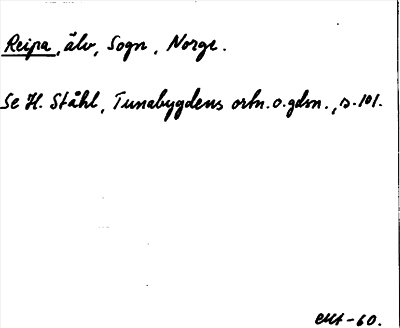 Reipa, älv, Sogn, Norge.
Se H. Ståhl, Tunabygdens ortn. o. gdsn., s. 101.
-60.